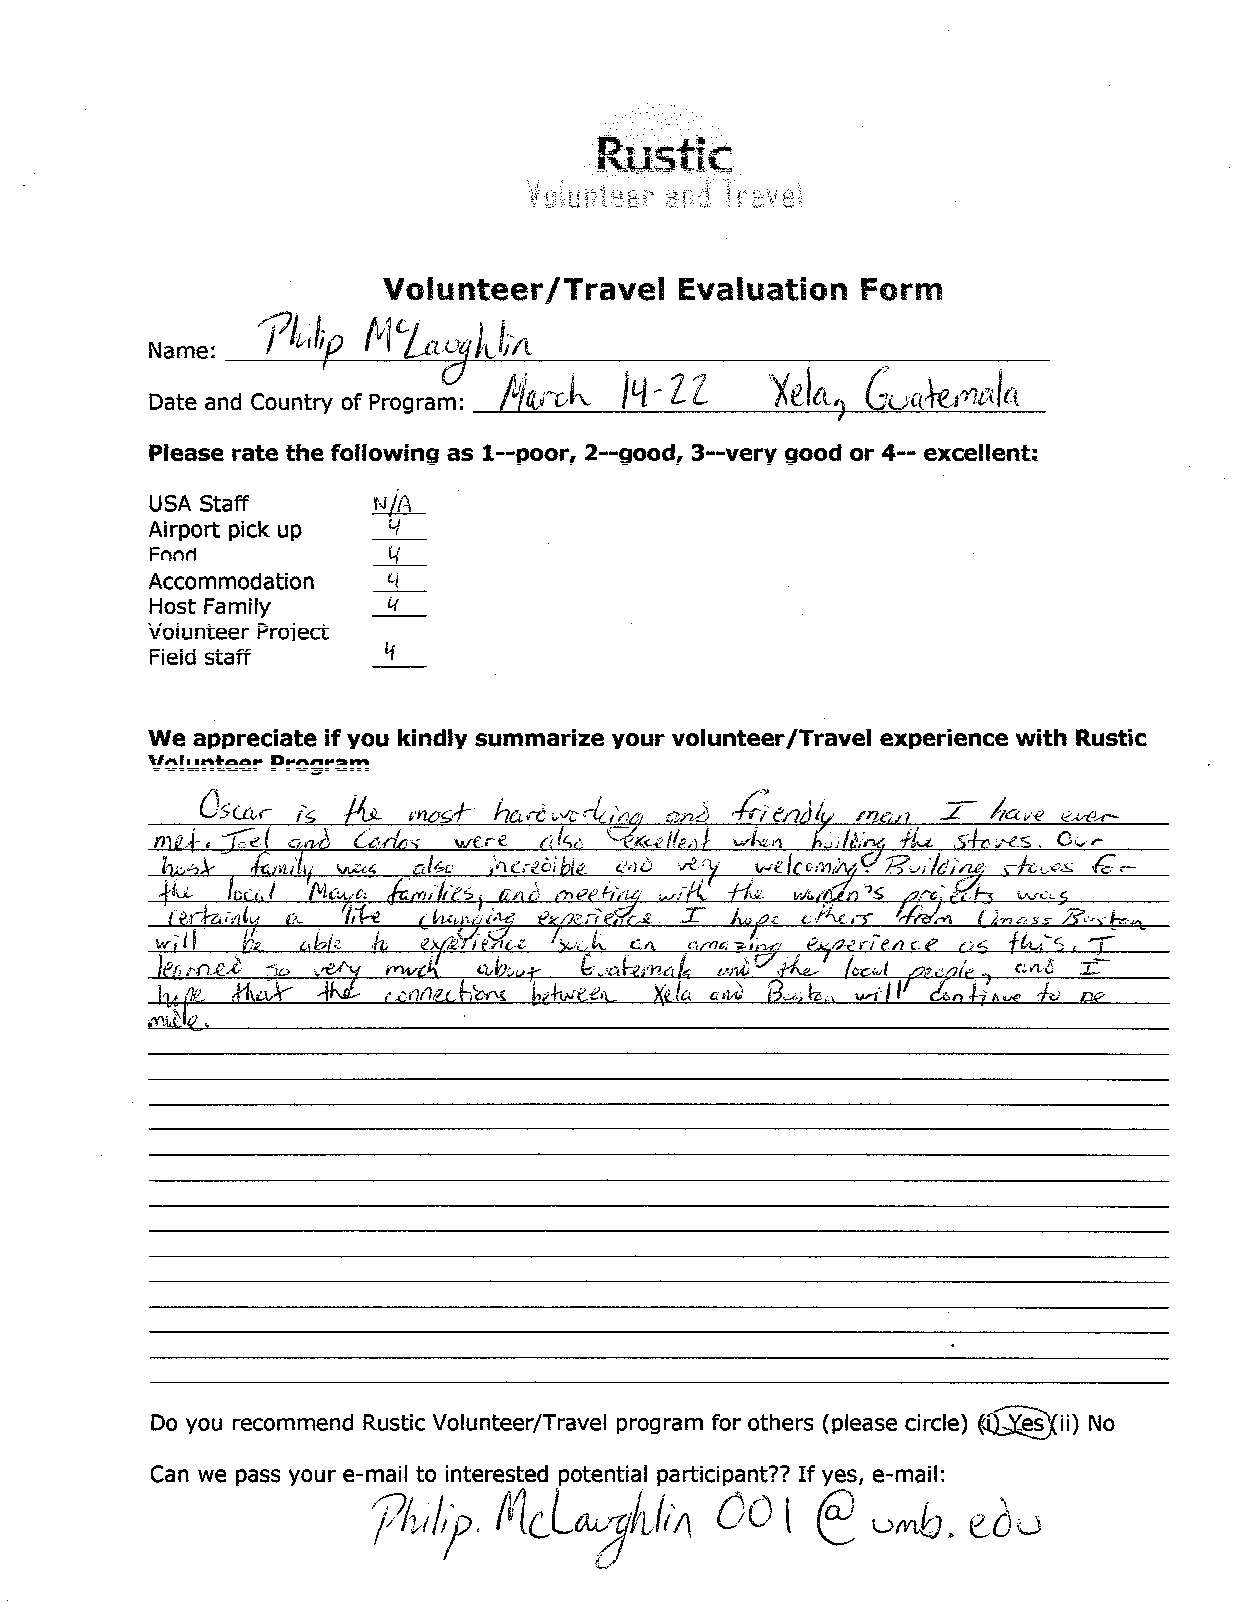 Rustic
Volunteer and Travel
Volunteer/Travel Evaluation Form
Name: Philip McLaughlin
Date and Country of Program: March 14-22 Xela, Guatemala
Please rate the following as 1--poor, 2--good, 3--very good or 4-- excellent:
USA Staff N/A
Airport pick up 4
Food 4
Accommodation 4
Host Family 4
Volunteer Project
Field staff 4
We appreciate if you kindly summarize your volunteer/Travel experience with Rustic
Volunteer Program
Oscar is the most hardworking and friendly man I have ever
met. Joel and Carlos were also excellent when building the stoves. Our
host family was also incredible and very welcoming. Building stoves for
the local Maya families, and meeting with the women's projects was
certainly a life changing experience. I hope others from Umass Boston
will be able to experience such an amazing experience as this. I
learned so very much about Guatemala and the local people, and I
hope that the connections between Xela and Boston will continue to be
made.
Do you recommend Rustic Volunteer/Travel program for others (please circle) (i) Yes (ii) No
Can we pass your e-mail to interested potential participant?? If yes, e-mail:
Philip.McLaughlin001@umb.edu